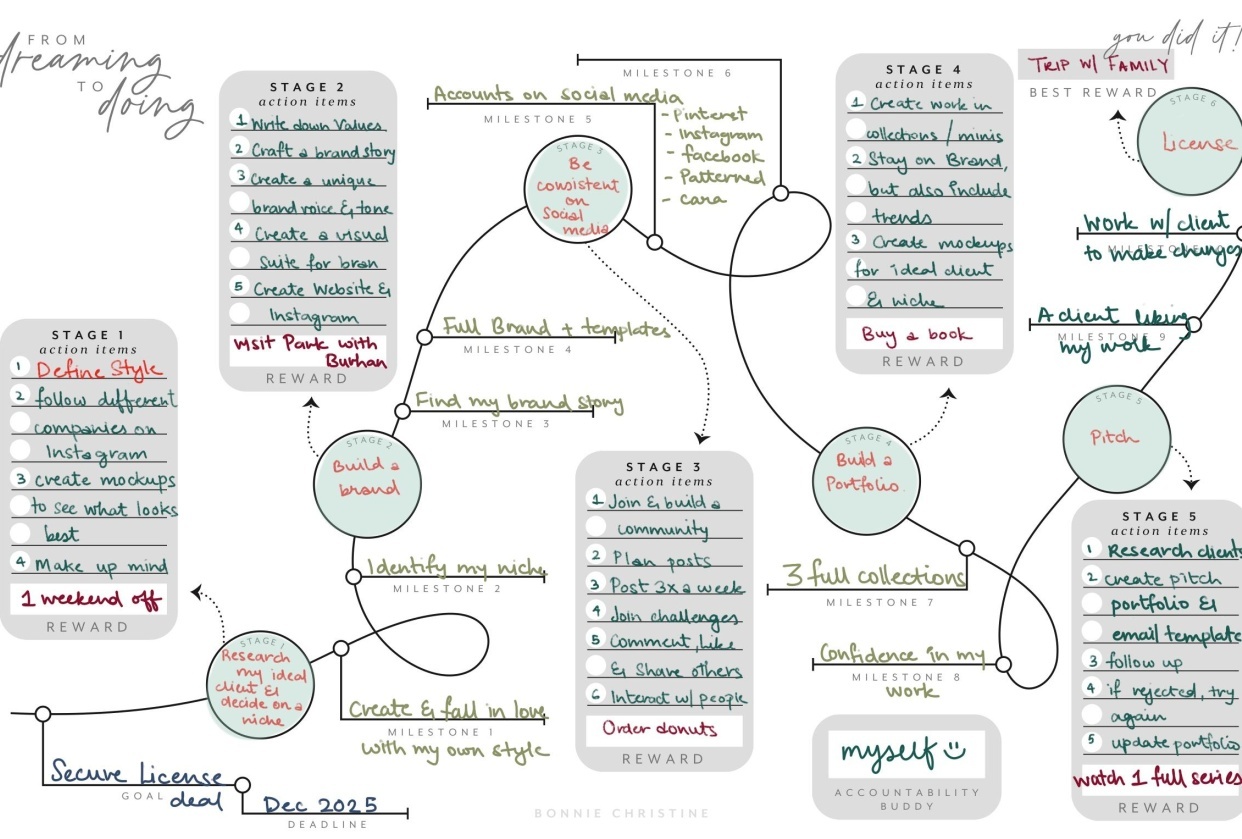 FROM
dreaming
TO
doing
you did it!
TRIP W/ FAMILY
BEST REWARD
STAGE 6
License
Work w/ client
to make changes
A client liking
MILESTONE 9
my work
STAGE 5
Pitch
STAGE 5
action items
1 Research clients
2 create pitch
portfolio &
email template
3 follow up
4 if rejected, try
again
5 update portfolio
watch 1 full series
REWARD
STAGE 4
action items
1 Create work in
collections / minis
2 Stay on Brand,
but also include
trends
3 Create mockups
for ideal client
& niche
Buy a book
REWARD
STAGE 4
Build a
Portfolio
3 full collections
MILESTONE 7
Confidence in my
MILESTONE 8
work
myself
ACCOUNTABILITY
BUDDY
MILESTONE 6
Accounts on social media
MILESTONE 5
- Pinteret
- Instagram
- facebook
- Patterned
- cara
STAGE 3
Be
consistent
on
Social
media
STAGE 3
action items
1 Join & build a
community
2 Plan posts
3 Post 3x a week
4 Join challenges
5 Comment, Like
& Share others
6 Interact w/ people
Order donuts
REWARD
STAGE 2
action items
1 Write down Values
2 Craft a brand story
3 Create a unique
brand voice & tone
4 Create a visual
Suite for bran
5 Create Website &
Instagram
visit Park with
Burhan
REWARD
Full Brand + templates
MILESTONE 4
Find my brand story
MILESTONE 3
STAGE 2
Build a
brand
Identify my niche
MILESTONE 2
STAGE 1
action items
1 Define Style
2 follow different
companies on
Instagram
3 create mockups
to see what looks
best
4 Make up mind
1 weekend off
REWARD
STAGE 1
Research
my ideal
client &
decide on a
niche
Create & fall in love
MILESTONE 1
with my own style
Secure License
GOAL
deal
Dec 2025
DEADLINE
BONNIE CHRISTINE